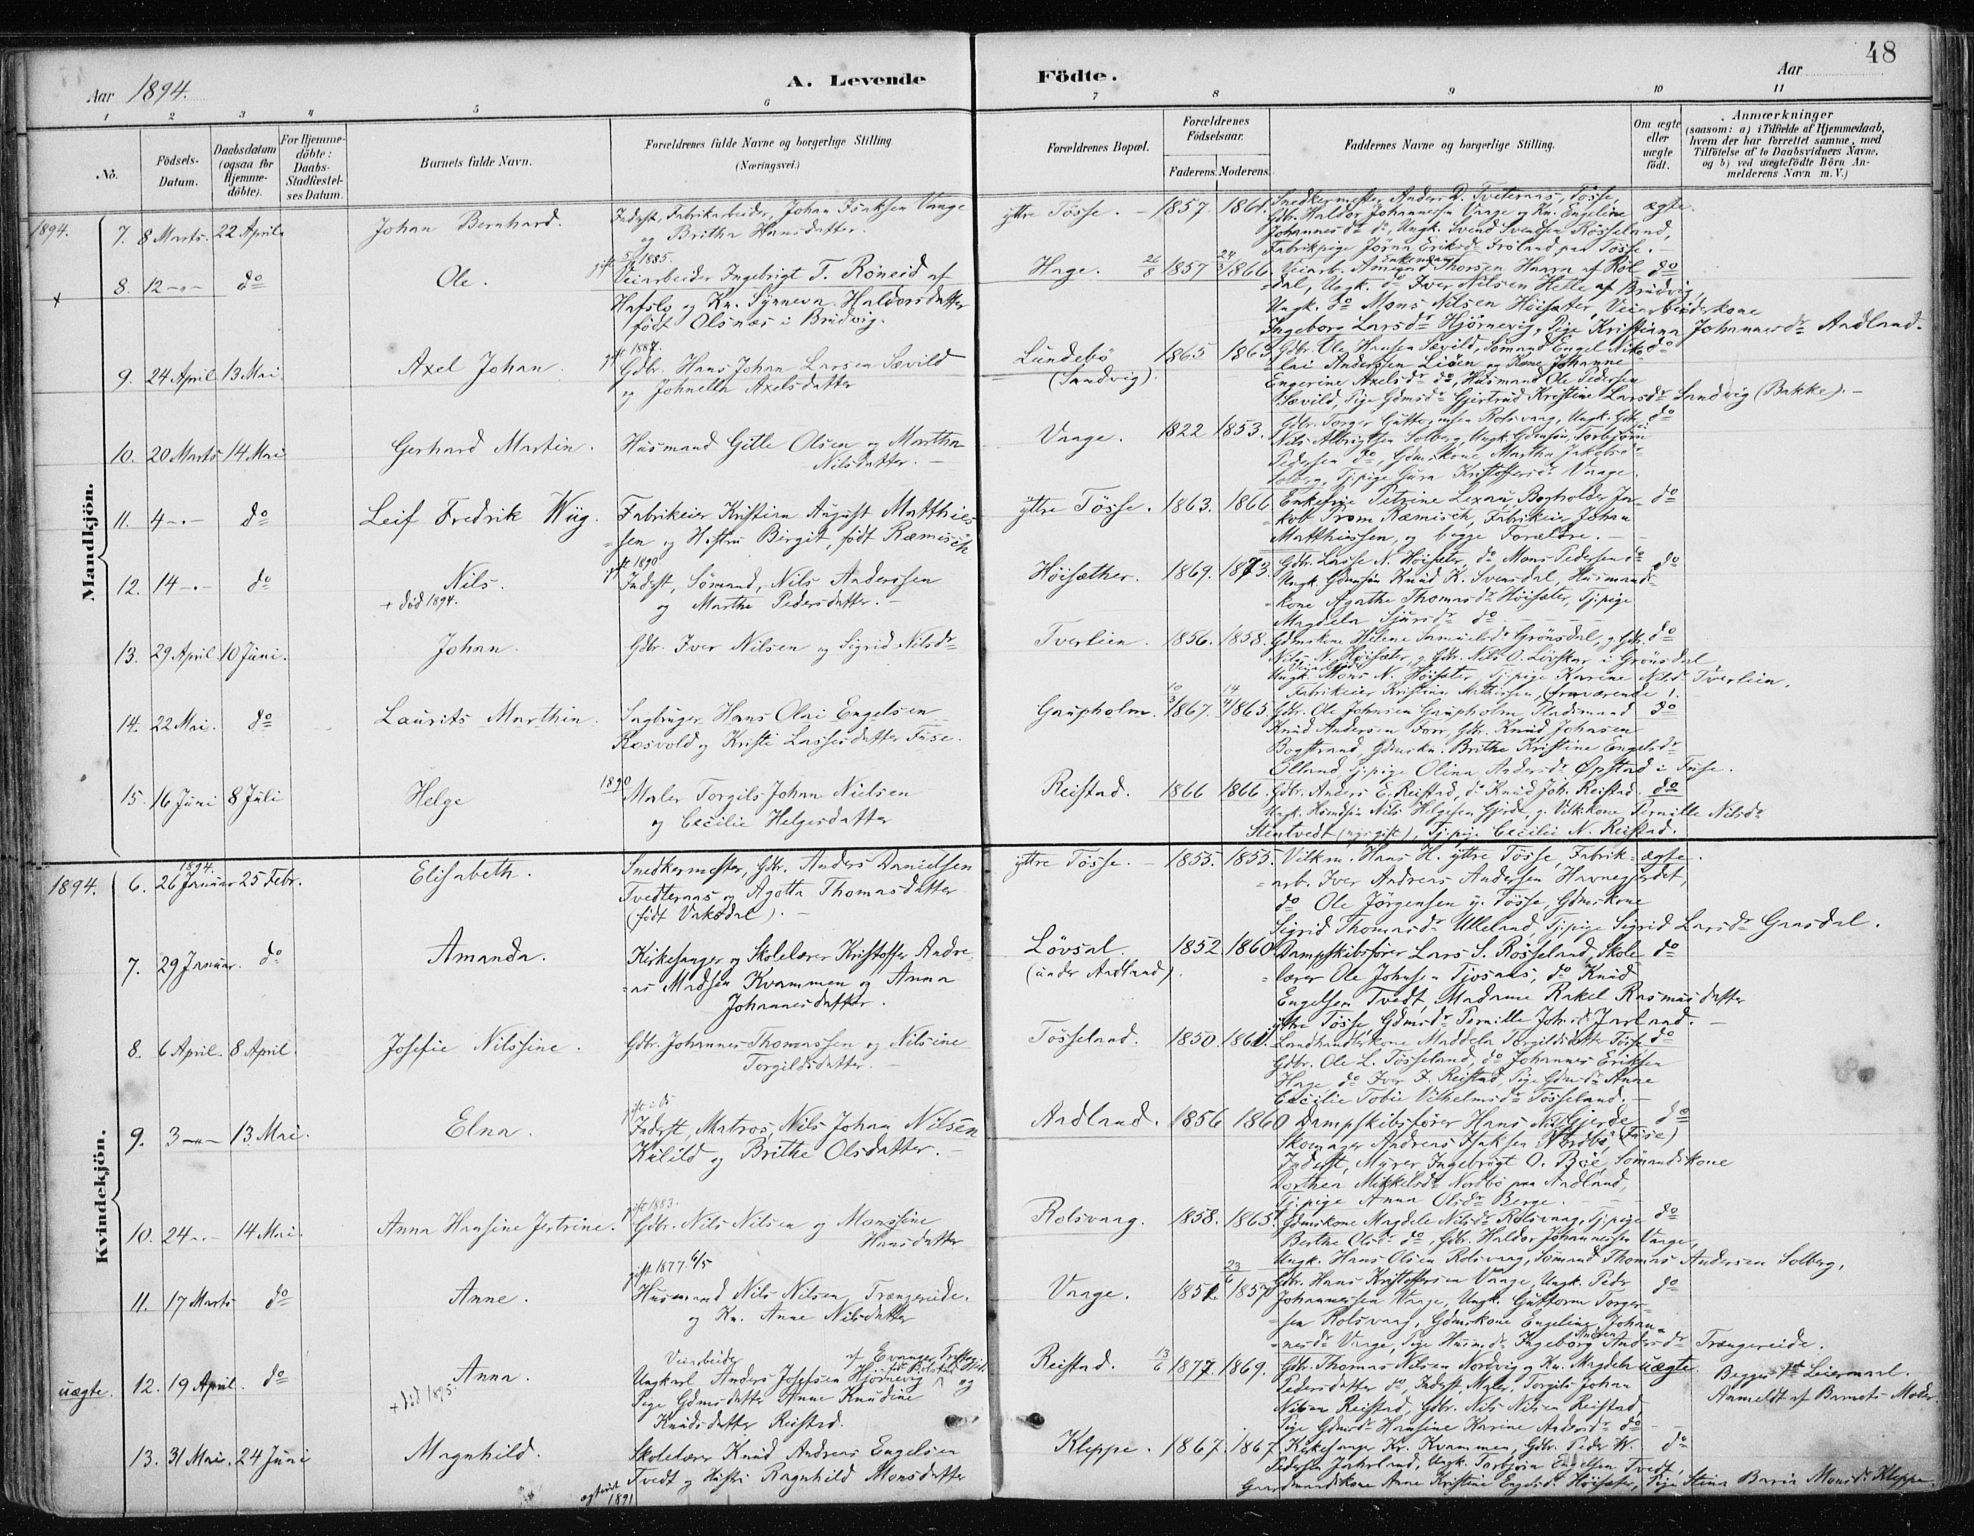 48
Aar 1894.
A. Levende Födte.
Aar
1 2 3 4 5 6 7 8 9 10 11
No.
Födsels-Datum.
Daabsdatum (ogsaa for Hjemmedöbte).
For Hjemmedöbte: Daabs-Stadfæstelses Datum.
Barnets fulde Navn.
Forældrenes fulde Navne og borgerlige Stilling
(Næringsvei.)
Forældrenes Bopæl.
Forældrenes Födselsaar.
Faderens. Moderens.
Faddernes Navne og borgerlige Stilling.
Om ægte eller uægte födt.
Anmærkninger
(saasom: a) i Tilfælde af Hjemmedaab, hvem der har forrettet samme, med Tilföielse af to Daabsvidners Navne, og b) ved uægtefödte Börn Anmelderens Navn m. V.)
Mandkjön.
1894. 7. 8 Marts. 22 April
Johan Bernhard.
Inderst, Fabrikarbeider, Johan Isaksen Vaage
og Britha Hansdatter.
ytre Tösse. 1857. 1861.
Snedkermester Anders D. Tveternaas, Tösse,
Gbr. Haldor Johannesen Vaage og Kn. Engeline
Johannesdr do, Ungk. Svend Svendsen Rösseland,
Fabrikpige Jörna Eriksdr Fröland paa Tösse.
ægte.
8. 12 do
Ole.
1885.
Veiarbeider Ingebrigt T. Röneid af
Hafslo og Kn. Synneva Haldorsdatter
født Olsnæs i Bruvig.
Hage. 26/8 1857 1866.
dal, Ungk. do Iver Nilsen Helle af Bruvig,
Ungk. do Mons Nilsen Höisæter, Veiarbeiderkone
Ingeborg Larsdr Hjörnevig, Pige Kristianna Johannesdr Aadland.
do
9. 24 April 13 Mai
Axel Johan.
gift 1887.
Gbr. Hans Johan Larsen Sævild
og Johnella Axelsdatter
Lundebö
(Sandvig).
1865 1863.
Gbr. Ole Hansen Sævild, Sømand Engel Niko-
lai Anderssen Liöen og Kone Johanne
Engerine Axelsdr do, Husmand Ole Pedersen
Sævild, Pige Gdmsdr Gjertrud Kristine Larsdr Sandvig (Bakke).
do
10. 20 Marts 14 Mai
Gerhard Martin.
Husmand Gitle Olsen og Martha
Nilsdatter.
Vaage. 1822 1853.
Gbr. Torger Guttormsen Rolsvaag, Ungk. Gbr.
Nils Albrigtsen Solberg, Ungk. Gdmsön Torbjörn
Pedersen do, Gdmskone Martha Jakobsdr
Solberg, Tj.pige Gura Kristoffersdr Vaage.
do
11. 4 do
Leif Fredrik Wiig.
Fabrikeier Kristian August Matthies-
sen og Hustru Birgit, født Ræmisch
ytre Tösse. 1863. 1866
Enkefrue Petrine Lexau, Bogholder Ja-
kob From Ræmisch, Fabrikeier Johan
Matthiessen, og begge Forældre.
do
12. 14 do
Nils.
+ död 1894.
gift 1890
Inderst, Sømand, Nils Anderssen
og Marthe Pedersdatter.
Höisæther. 1869. 1873.
Gbr. Lasse N. Höisæter, do Mons Pedersen do
Ungk. Gdmsön Knud K. Svensdal, Husmands-
kone Agathe Thomasdr Höisæter, Tj.pige
Magdela Sjursdr do
do
13. 29 April 10 Juni.
Johan.
Gbr. Iver Nilsen og Sigrid Nilsdr
Tverlien. 1856. 1858.
Gdmskone Helene Samuelsdr Grönsdal, g. Gbr.
Nils N. Höisæter, g. Gbr. Nils O. Lövskar i Grönsdal
Ungk. Mons N. Höisæter, Tj.pige Karine Nilsdr Tverlien.
do
14. 22 Mai. do
Laurits Marthin.
Sagbruger Hans Olai Engelsen
Rosvold og Kristi Lassesdatter Fuse.
Gaupholm. 1867. 1865.
Fabrikeier Kristian Mathisen, (fraværende).
Gbr. Ole Johnsen Gaupholm, Pladsmand
Knud Andersen Torr, Gbr. Knud Johnsen
Bogstrand, Gdmskn. Brithe Kristine Engelsdr
Ölland, Tj.pige Olina Andersdr Øpstad i Fuse.
do
15. 16 Juni 8 Juli
Helge
1890
Maler Torgils Johan Nielsen
og Cecilie Helgesdatter
Reistad. 1866 1866.
Gbr. Anders E. Reistad, do Knud Joh. Reistad.
Ungk. Hmdsön Nils Helgesen Gjerde, g. Vilkkone Pernille Nilsdr
Steintvedt (nygift), Tj.pige Cecilie N. Reistad.
do
Kvindekjön.
1894. 6. 26 Januar 1894. 25 Febr.
Elisabeth.
Snedkermester, Gbr. Anders Danielsen
Tvedternaas og Agatta Thomasdatter
(født Vaksdal).
ytre Tösse. 1853. 1855.
Vilkm. Hans H. ytre Tösse, Fabrik-
arb. Iver Andreas Andersen Havnegjerdet,
do Ole Jörgensen y. Tösse, Gdmskone
Sigrid Thomasdr Ulleland, Tj.pige Sigrid Larsdr Gaasdal.
ægte.
7. 29 Januar. do
Amanda.
Kirkesanger og Skolelærer Kristoffer Andre-
as Madsen Kvammen og Anna
Johannesdatter.
Lövsal.
(under Aadland).
1852 1860
Dampskibsförer Lars S. Rösseland, Skole-
lærer Ole Johnsen Tjosaas, do Knud
Engelsen Tvedt, Madame Rakel Rasmusdatter
ytre Tösse, Gdmsdr Pernille Johsdr Jarland.
do
8. 6 April. 8 April.
Josefie Nilssine.
Gbr. Johannes Thomassen og Nilsine
Torgildsdatter.
Tösseland. 1850. 1861.
Landhandlerkone Maddela Torgildsdatter Tösse
Gbr. Ole L. Tösseland, do Johannes Eriksen
Hage, do Iver I. Reistad, Pige Gdmsdr Anne
Cecilie Tobie Vilhelmsdr Tösseland.
do
9. 3 13 Mai.
Elna.
Inderst, Matros Nils Johan Nilsen
Kalild og Brithe Olsdatter.
Aadland. 1856 1860
Dampskibsförer Hans N. Gjerde (Fuse)
Skomager Andreas Isaksen Nordbö,
Inderst, Murer Ingebrigt O. Böe, Sømandskone
Dorthea Mikkelsdr Nordbö paa Aadland,
Tj.pige Anna Olsdr Berge.
do
10. 24 14 Mai.
Anna Hansine Jertrine.
gift 1883.
Gbr. Nils Nilsen og Monssine
Hansdatter
Rolsvaag. 1858. 1865.
Gdmskone Magdele Nilsdr Rolsvaag, Tj.pige
Berthe Olsdr do, Gbr. Haldor Johannesen Vaage,
Ungk. Hans Olsen Rolsvaag, Sømand Thomas Andersen Solberg.
do
11. 17 Marts do
Anne.
gift 1877. 6/5
Husmand Nils Nilsen Trængereide.
og Kn. Anne Nilsdatter
Vaage. 1851. 23/6 1857
Gbr. Hans Kristoffersen Vaage, Ungk. Peder
Johannessen Vaage, Ungk. Guttorm Torger-
sen Rolsvaag, Gdmskone Engeline Johan-
nesdr Vaage, Pige Husmdr Ingeborg Andersdr Trængereide.
do
uægte. 12. 19 April. do
Anna.
+ död 1895.
Veiarbeider
Ungkarl Anders Josefsen Hjörnevig og
Pige Gdmsdatter Anne Knudine
Knudsdatter Reistad.
Reistad. 13/6 1877. 1869.
Gbr. Thomas Nilsen Nordvig og Kn. Magdela
Pedersdatter do, Inderst, Maler, Torgils Johan
Nilsen Reistad, Gbr. Nils Nilsen Reistad
Pige Gdmsdr Hansine Karine Andersdr do
uægte.
Begges 1st Leiermaal.
Anmeldt af Barnets Moder.
13. 31 Mai. 24 Juni
Magnhild.
Skolelærer Knud Andreas Engelsen
Tvedt og Hustru Ragnhild Monsdatter
1891
Kleppe. 1867. 1867.
Kirkesanger Kr. Kvammen, Gbr. Peder W.
Pedersen Jahrland, Ungk. Torbjörn Engelsen Tvedt,
Gaardmandskone Anne Kristine Engelsdr Höisæter, Pige Stina Baria Monsdr Kleppe.
do